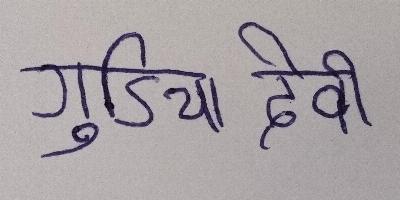 गुडिया देवी